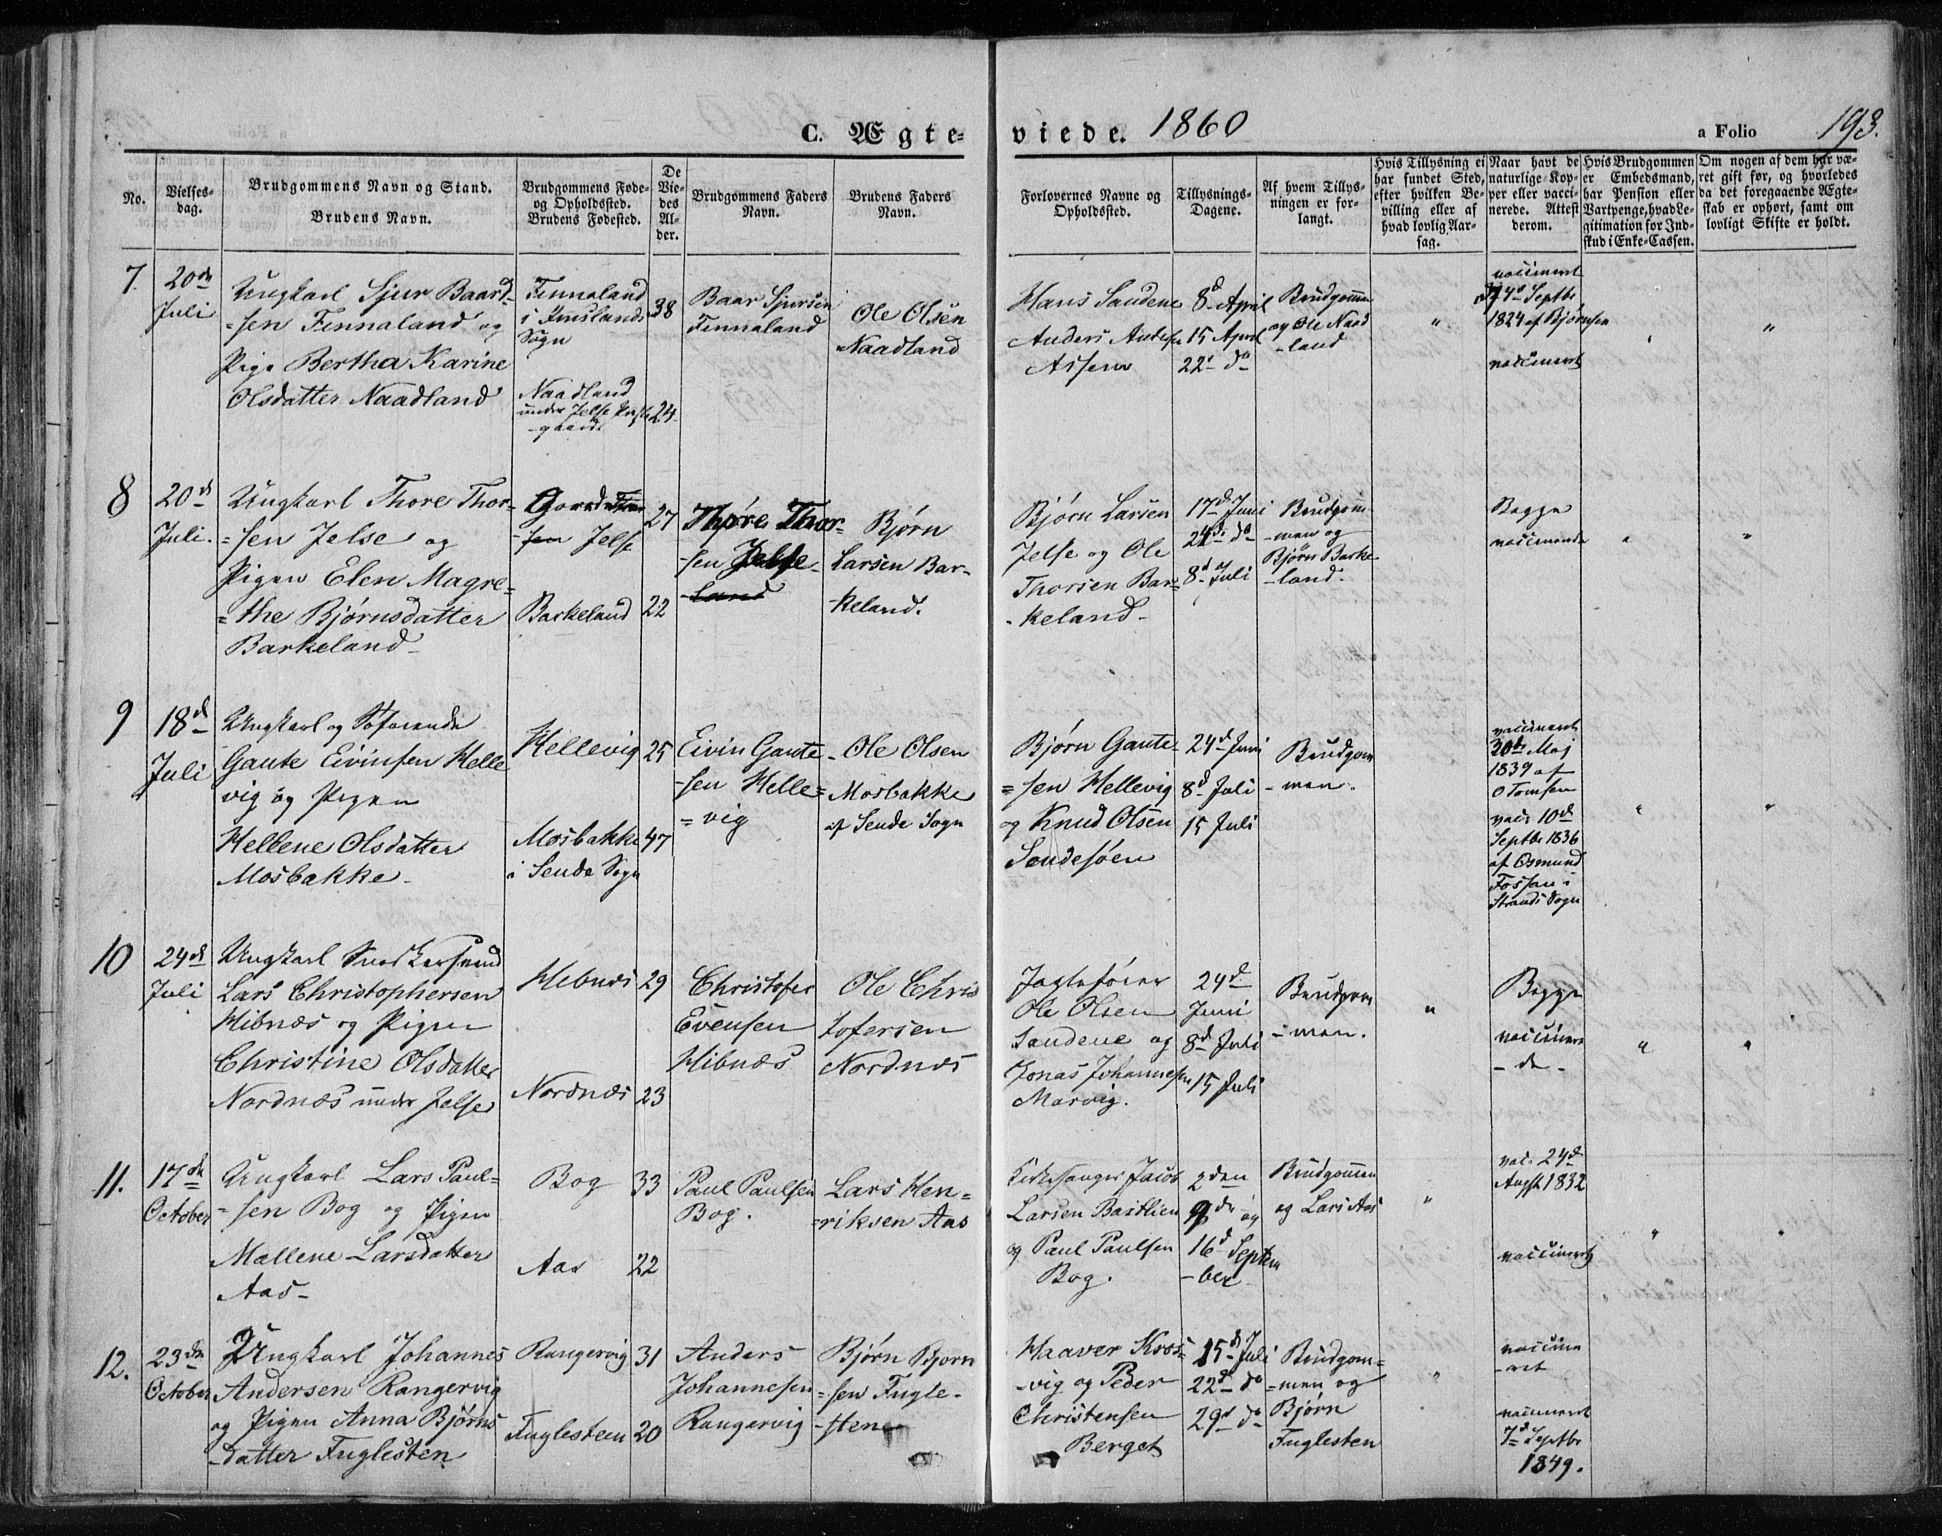 C. Ægteviede. 1860
a Folio 193.
No.
Vielses-
dag.
Brudgommens Navn og Stand.
Brudens Navn.
Brudgommens Føde-
og Opholdssted.
Brudens Fødested.
De
Vie-
des
Al-
der.
Brudgommens Faders
Navn.
Brudens Faders
Navn.
Forlovernes Navne og
Opholdssted.
Tillysnings-
Dagene.
Af hvem Tillys-
ningen er for-
langt.
Hvis Tillysning ei
har fundet Sted,
efter hvilken Be-
villing eller af
hvad lovlig Aar-
sag.
Naar havt de
naturlige Kop-
per eller vacci-
nerede. Attest
derom.
Hvis Brudgommen
er Embedsmand,
har Pension eller
Vartpenge, hvad Le-
gitimation for Ind-
skud i Enke-Cassen.
Om nogen af dem har væ-
ret gift før, og hvorledes
da det foregaaende Ægte-
skab er ophørt, samt om
lovligt Skifte er holdt.
7.
20de
Juli
Ungkarl Sjur Baard-
-sen Finnaland og
Pige Bertha Karine
Olsdatter Naadland
Finnaland
i Imslands
Sogn
Naadland
under Jelse
38
24
Baar Sjursen
Finnaland
Ole Olsen
Naadland
Hans Sandene
Anders
8d April
15 April
22d do
Brudgommen
og Ole Naad
-land
"
vaccineret
24d Septbr
1824 af Bjørnsen
vaccineret
"
"
8
20de
Juli.
Ungkarl Thore Thor-
=sen Jelse og
Pigen Elen Magre=
=the Bjørnsdatter
Barkeland
Jelse
Barkeland
27
22
Thore Thor-
-sen Jelse
-land
Bjørn
Larsen Bar-
-keland.
Bjørn Larsen
Jelse og Ole
Thorsen Bar=
-keland-
17d Juni
24d do
8d og Juli
Brudgom-
-men og
Bjørn Barke-
-land.
Begge
vaccinerede
"
"
9
18d
Juli
Ungkarl og Søfarende
Gaute Eivinsen Helle
vig og Pigen
Hellene Olsdatter
Mosbakke
Hellevig
Mosbakke
i Sende Sogn
25
47
Eivin Gaute-
-sen Helle=
=vig
Ole Olsen
Mosbakke
af Sende Sogn
Bjørn Gaute-
=sen Hellevig
og Knud Olsen
Sandesøen
24d Juni
8d Juli
15 Juli
Brudgom
-men.
vaccineret
30de Maj
1839 af
O Tomsen
vacc. 10d
Septbr 1836
af Osmund
Fossan i
Strands Sogn
"
"
10
24de
Juli
Ungkarl Snedkersvend
Lars Christophersen
Hibnæs og Pigen
Christine Olsdatter
Nordnæs under Jelse
Hibnæs
Nordnæs
29
23
Christofer
Evensen
Hibnæs
Ole Chris
tofersen
Nordnæs
Ole Olsen
Sandene og
Jonas Johannesen
Marvig.
24d
Juni
8d Juli
15 Juli
Brudgom
-men.
"
Begge
vaccinere
-de-
"
"
11.
17de
October
Ungkarl Lars Paul-
-sen Bog og Pigen
Mallene Larsdatter
Aas-
Bog
Aas
33
22
Paul Paulsen
Bog.
Lars Hen-
=riksen Aas
Kirkesanger Jacob
Larsen Bastlien
og Paul Paulsen
Bog.
2den
9de og
16d Septem
-ber
Brudgommen
og Lars Aas
"
vac. 24d
Augst 1832
vaccineret
"
"
12.
23de
October
Ungkarl Johannes
Andersen Rangervig
og Pigen Anna Bjørns
-datter Fuglesten
Rangervig
Fuglesteen
31
20
Anders
Johannesen
Rangervig
Bjørn Bjorn
=sen Fugle-
-sten
Haaver Kros-
-vig og Peder
Christensen
Berget
15d Juli
22d do
29d do
Brudgom=
=men og
Bjørn
Fuglesten
"
vaccine
-ret
vaccineret
7d Septbr
1849.